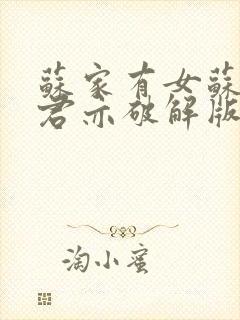 蘇家有女蘇
君亦破解版
淘小蜜